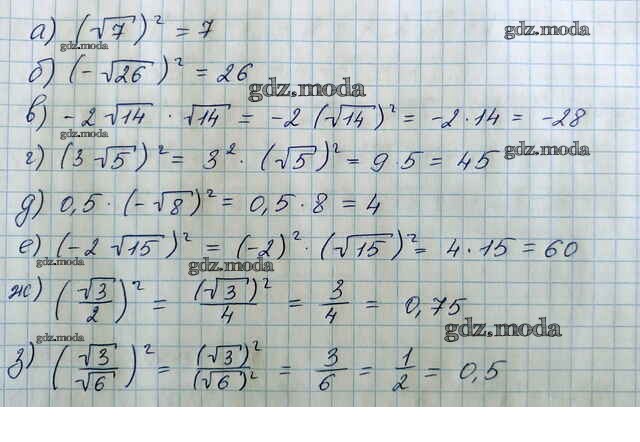 а) (√7)² = 7
gdz.moda
gdz.moda
б) (-√26)² = 26
gdz.moda
в) -2√14 · √14 = -2(√14)² = -2·14 = -28
gdz.moda
г) (3√5)² = 3² · (√5)² = 9·5 = 45
gdz.moda
д) 0,5 · (-√8)² = 0,5 · 8 = 4
е) (-2√15)² = (-2)² · (√15)² = 4·15 = 60
gdz.moda
gdz.moda
ж) (√3/2)² = (√3)²/4 = 3/4 = 0,75
gdz.moda
gdz.moda
з) (√3/√6)² = (√3)²/(√6)² = 3/6 = 1/2 = 0,5